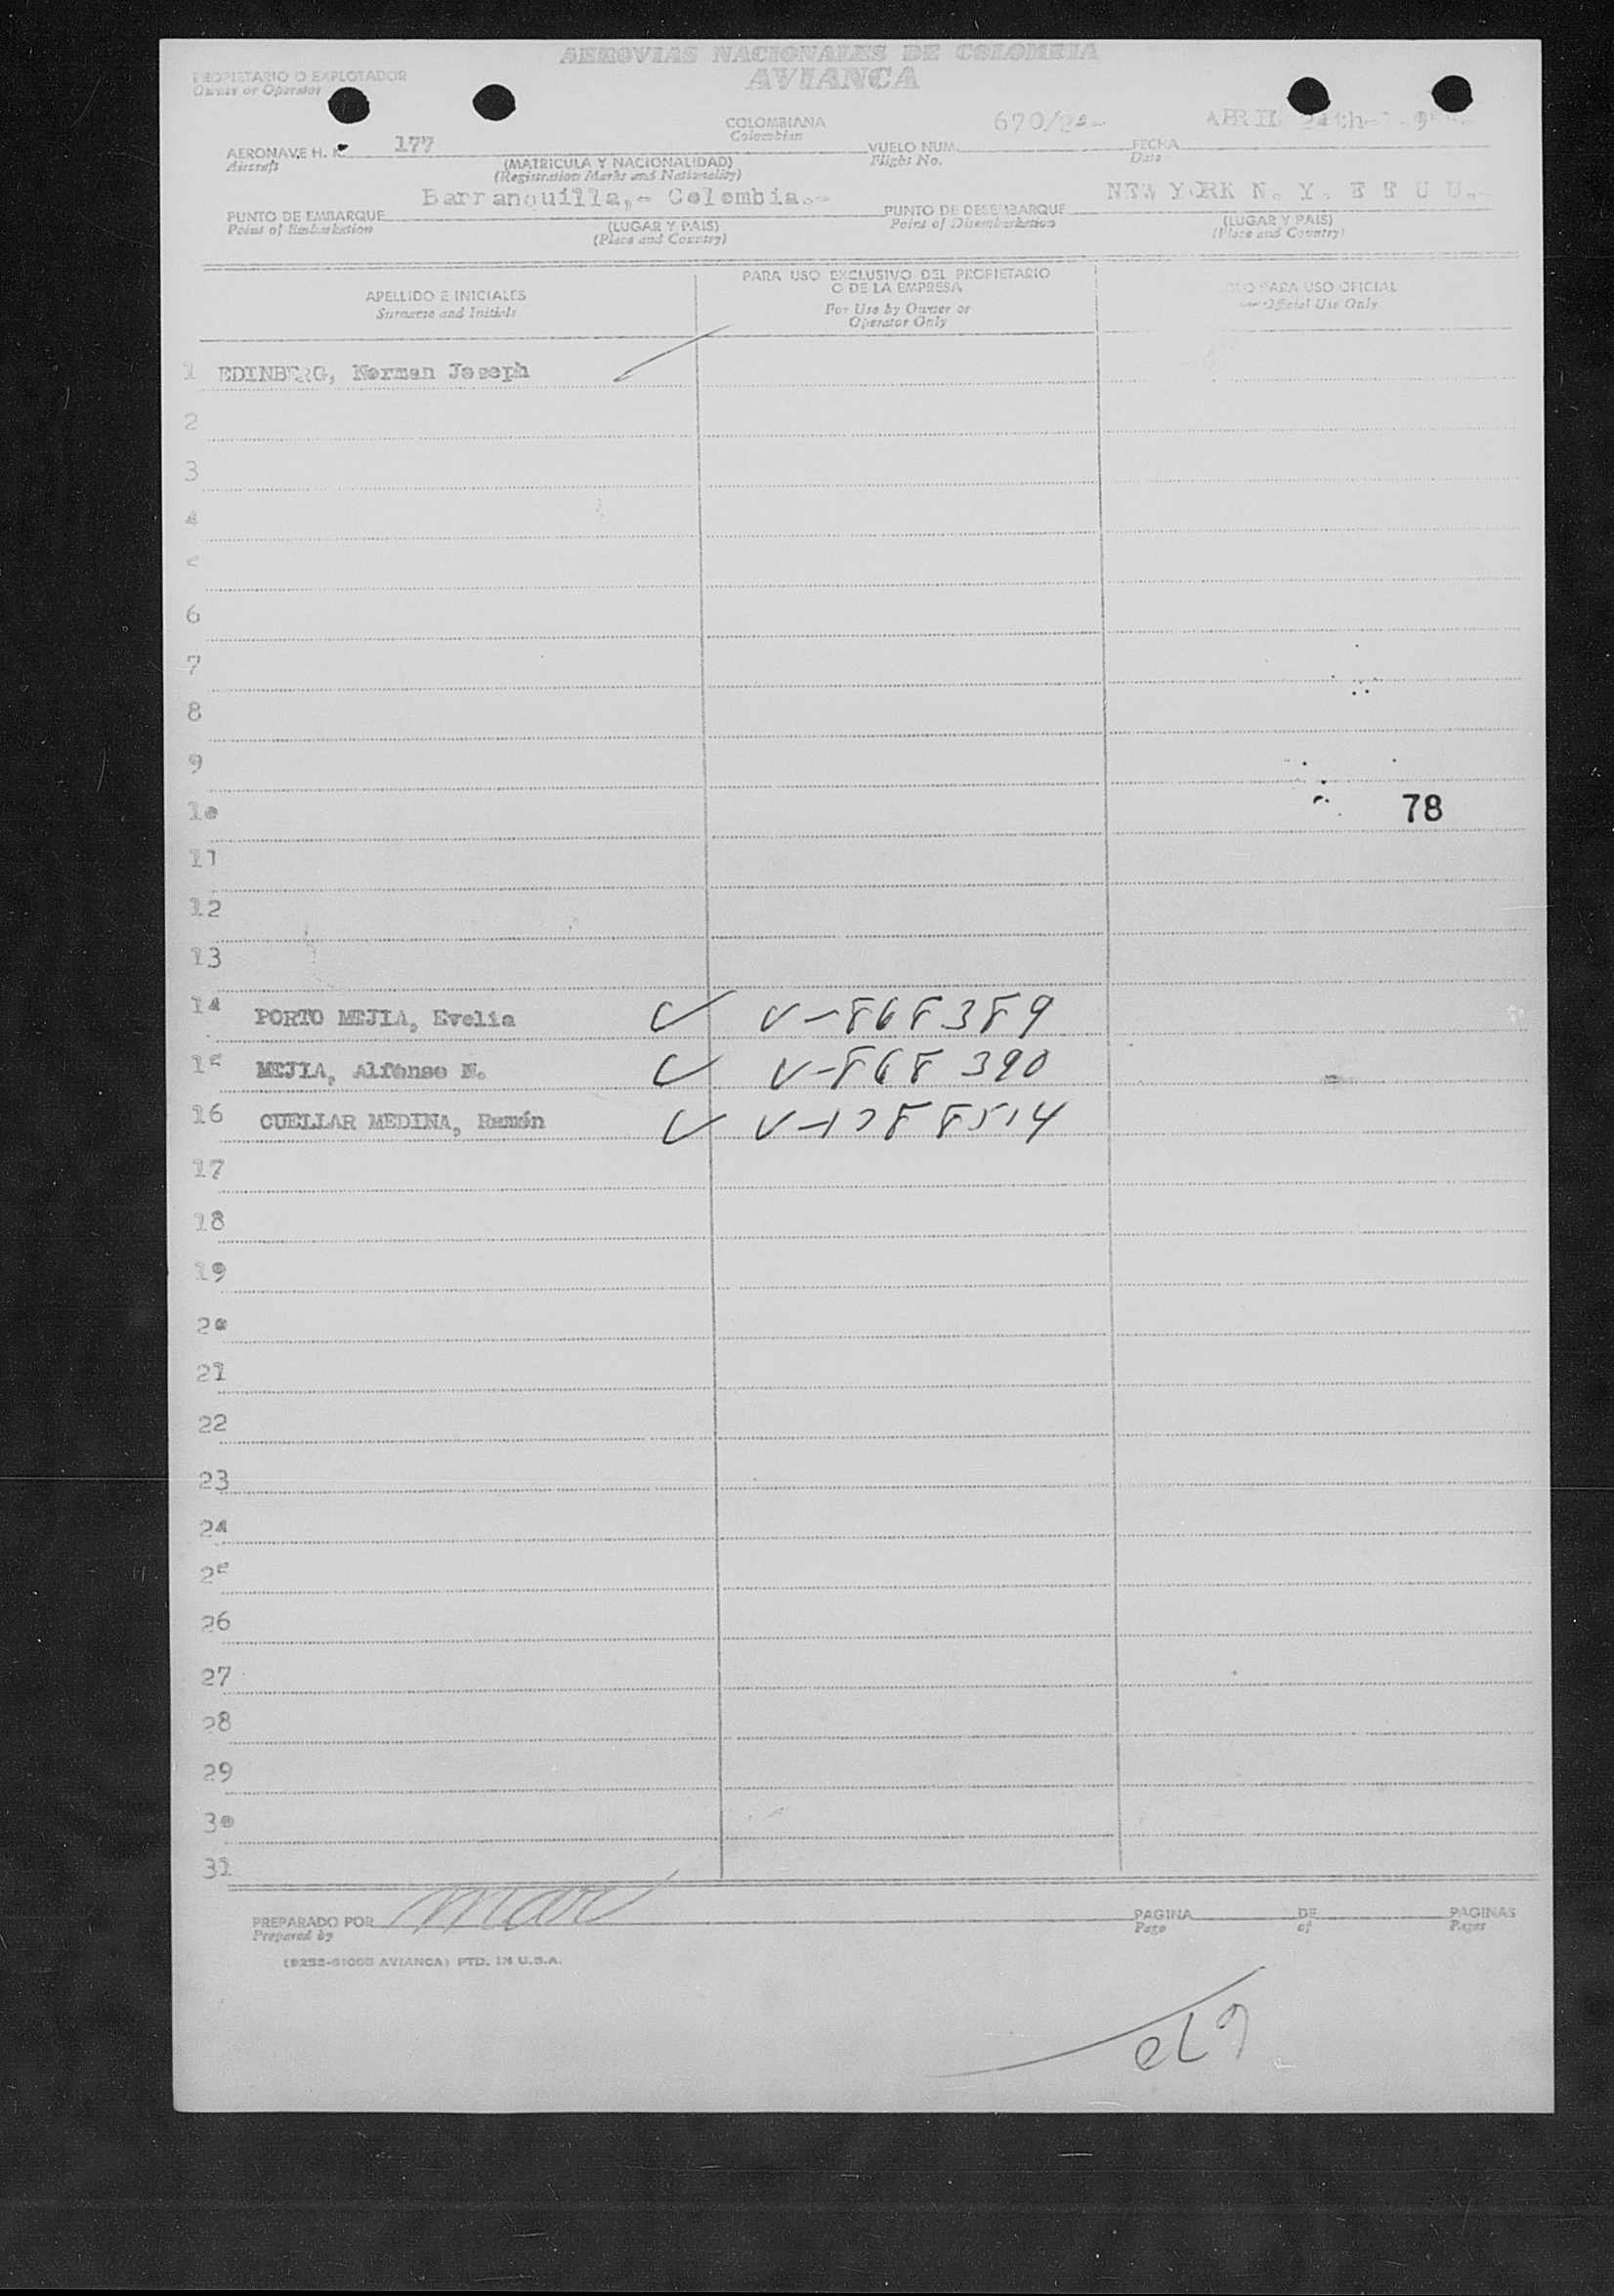 AEROVIAS NACIONALES DE COLOMBIA
AVIANCA
PROPIETARIO O EXPLOTADOR
Owner or Operator
COLOMBIANA
Colombian
670/22-
APRIL
AERONAVE H. K. 177
Aircraft
(MATRICULA Y NACIONALIDAD)
(Registration Marks and Nationality)
VUELO NUM.
Flight No.
FECHA
Date
Barranquilla,- Colombia.-
NEW YORK N. Y. E E U U.-
PUNTO DE EMBARQUE
Point of Embarkation
(LUGAR Y PAIS)
(Place and Country)
PUNTO DE DESEMBARQUE
Point of Disembarkation
(LUGAR Y PAIS)
(Place and Country)
APELLIDO E INICIALES
Surname and Initials
PARA USO EXCLUSIVO DEL PROPIETARIO
O DE LA EMPRESA
For Use by Owner or
Operator Only
PARA USO OFICIAL
Official Use Only
1 EDINBERG, Norman Joseph
2
3
4
5
6
7
8
9
10
78
11
12
13
14 PORTO MEJIA, Evelia V-868389
15 MEJIA, Alfonso N. V-868390
16 CUELLAR MEDINA, Ramón
17
18
19
20
21
22
23
24
25
26
27
28
29
30
31
PREPARADO POR
Prepared by
PAGINA
Page
DE
of
PAGINAS
Pages
AVIANCA) PTD. IN U.S.A.